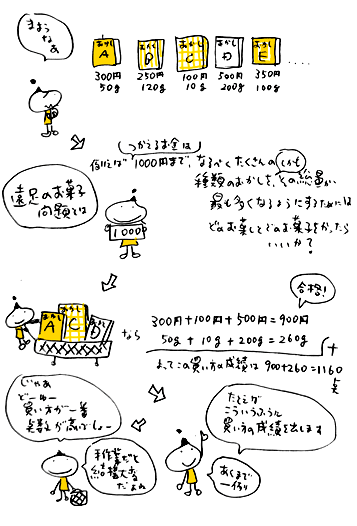 まよう
なぁ
おかし
A
おかし
B
おかし
C
おかし
D
おかし
E
300円 250円 100円 500円 350円
50g 120g 10g 200g 100g
つかえるお金は
例えば1000円まで、なるべくたくさんの
しかも
種類のおかしを、その総量が
最も多くなるようにするためには
どのお菓しとどのお菓子をかったら
いいか?
遠足のお菓子
問題とは
1000
合格!
A
C
D
なら
300円+100円+500円=900円
50g + 10g + 200g = 260g
+
よってこの買い方の成績は 900+260=1160
点
じゃあ
どーゆー
買い方が一番
点数が高いでしょー
手作業だと
結構大変
だよね
たとえば
こういうふうに
買い方の成績を出します
あくまで
一例